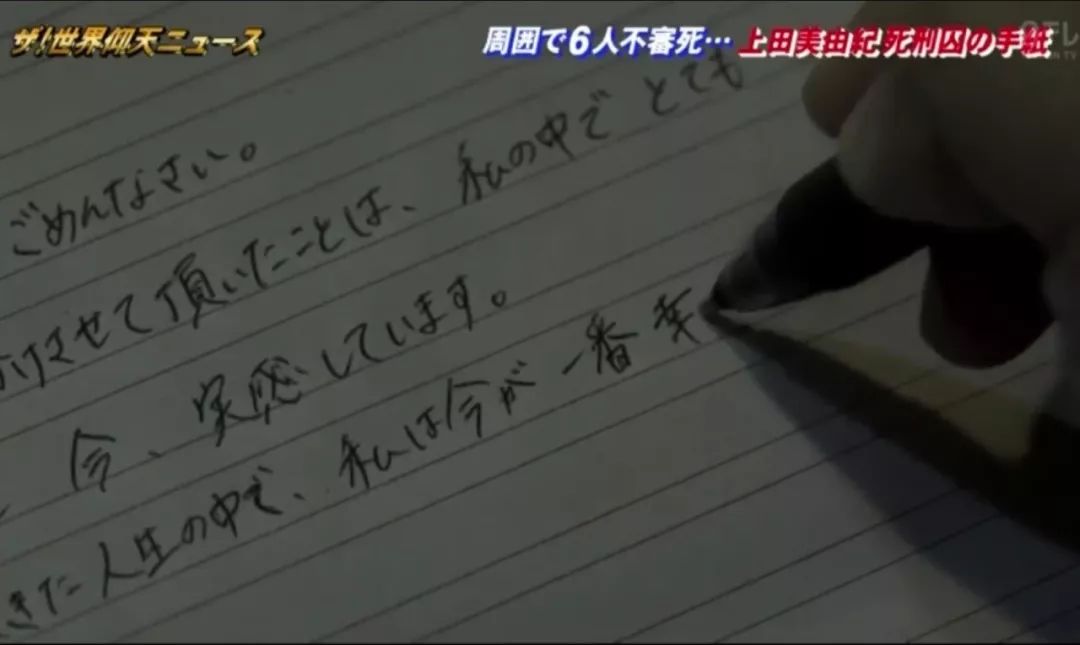 ザ!世界仰天ニュース
周囲で6人不審死…上田美由紀死刑囚の手紙
ごめんなさい。
けさせて頂いたことは、私の中でとても
今、実感しています。
きた人生の中で、私は今が一番幸